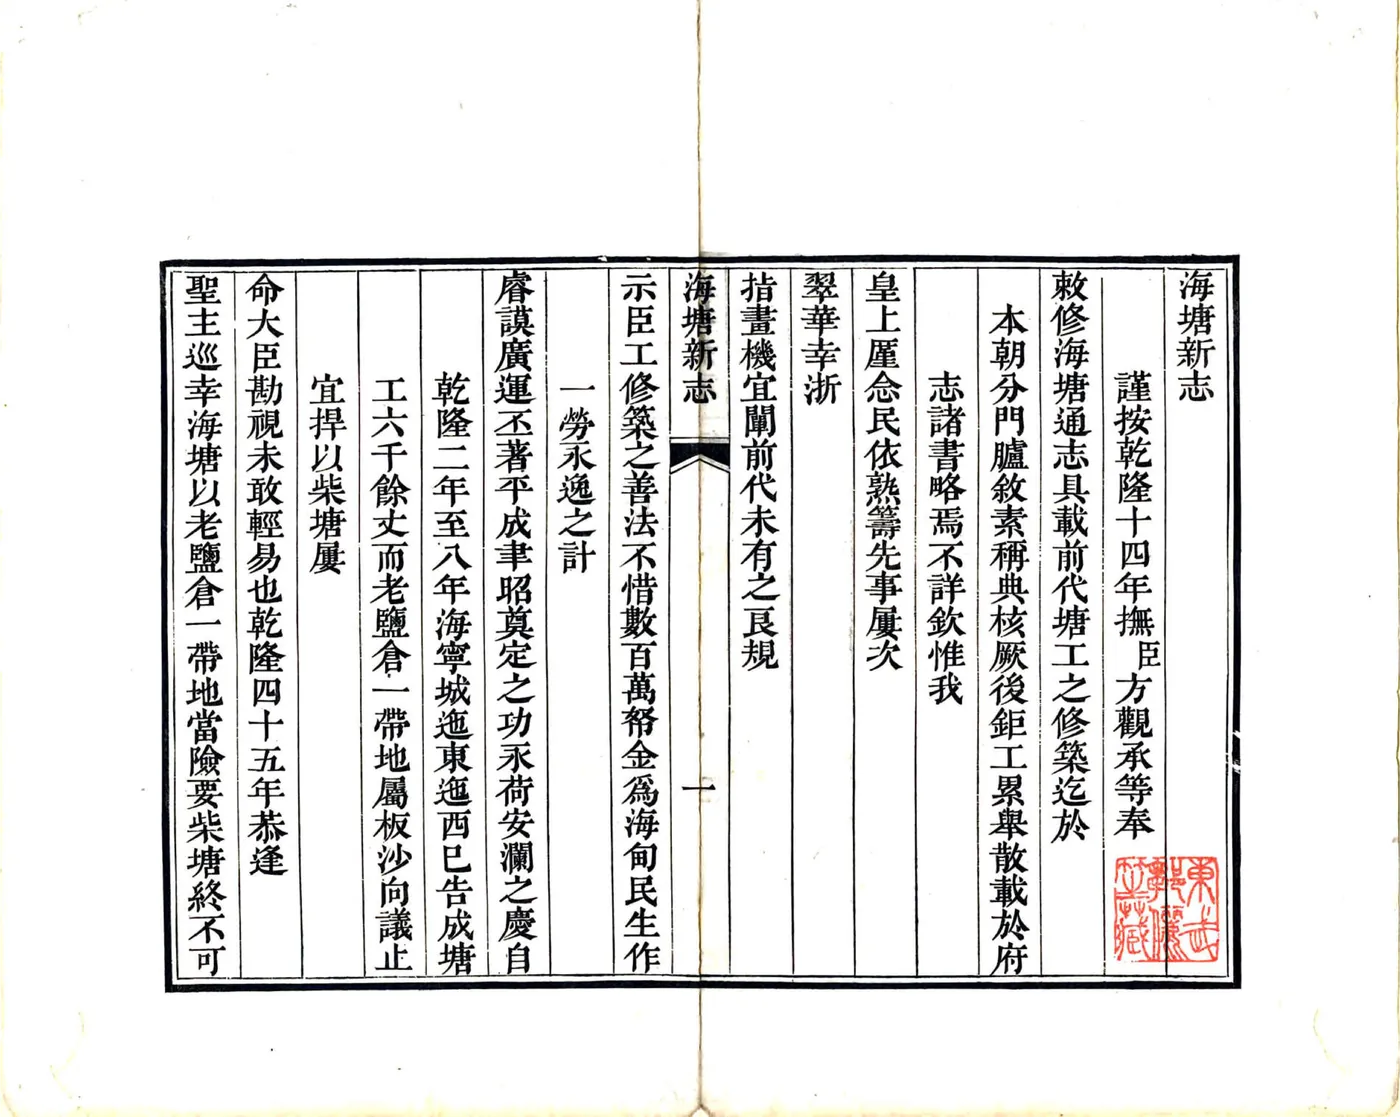 海塘新志
謹按乾隆十四年撫臣方觀承等奉
敕修海塘通志具載前代塘工之修築迄於
本朝分門臚敘素稱典核厥後鉅工累舉散載於府
志諸書略焉不詳欽惟我
皇上厪念民依熟籌先事屢次
翠華幸浙
指畫機宜闡前代未有之良規
海塘新志 一
示臣工修築之善法不惜數百萬帑金爲海甸民生作
一勞永逸之計
睿謨廣運丕著平成聿昭奠定之功永荷安瀾之慶自
乾隆二年至八年海寧城迤東迤西已告成塘
工六千餘丈而老鹽倉一帶地屬板沙向議止
宜捍以柴塘屢
命大臣勘視未敢輕易也乾隆四十五年恭逢
聖主巡幸海塘以老鹽倉一帶地當險要柴塘終不可
東武
藏